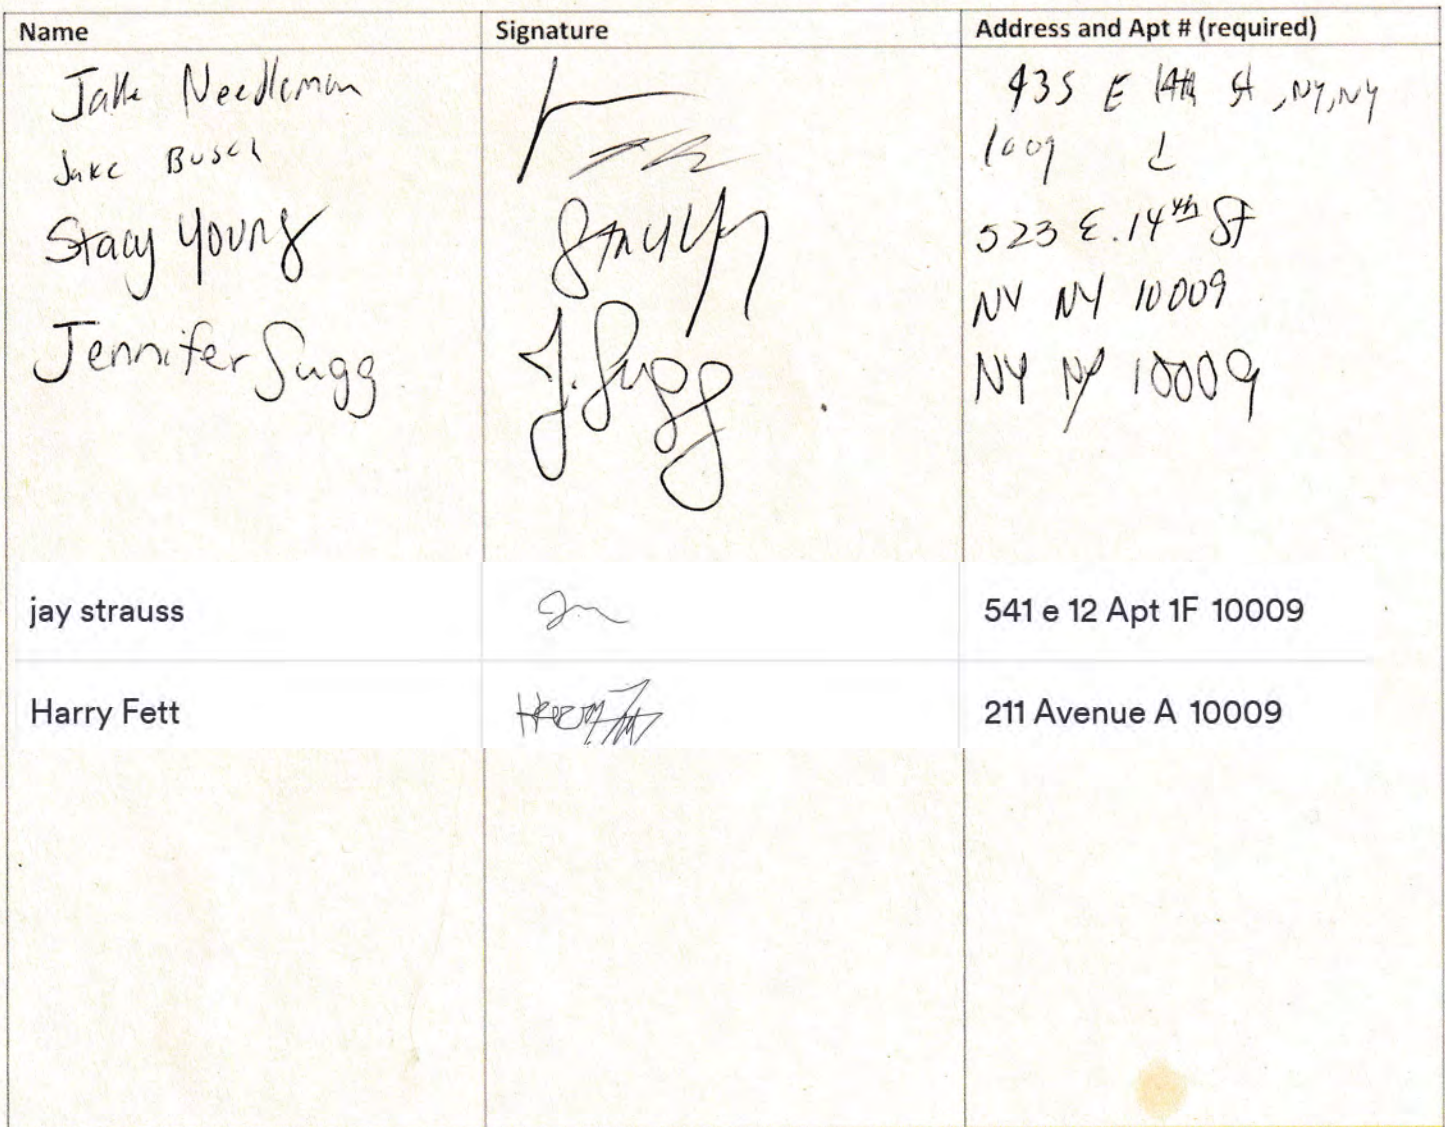 Name Signature Address and Apt # (required)
Jake Needleman 435 E 14th St, NY, NY
Jake Busch 1009
Stacy Young Stacy Yg 523 E. 14th St
NY NY 10009
Jennifer Sugg J. Sugg NY NY 10009
jay strauss 541 e 12 Apt 1F 10009
Harry Fett 211 Avenue A 10009